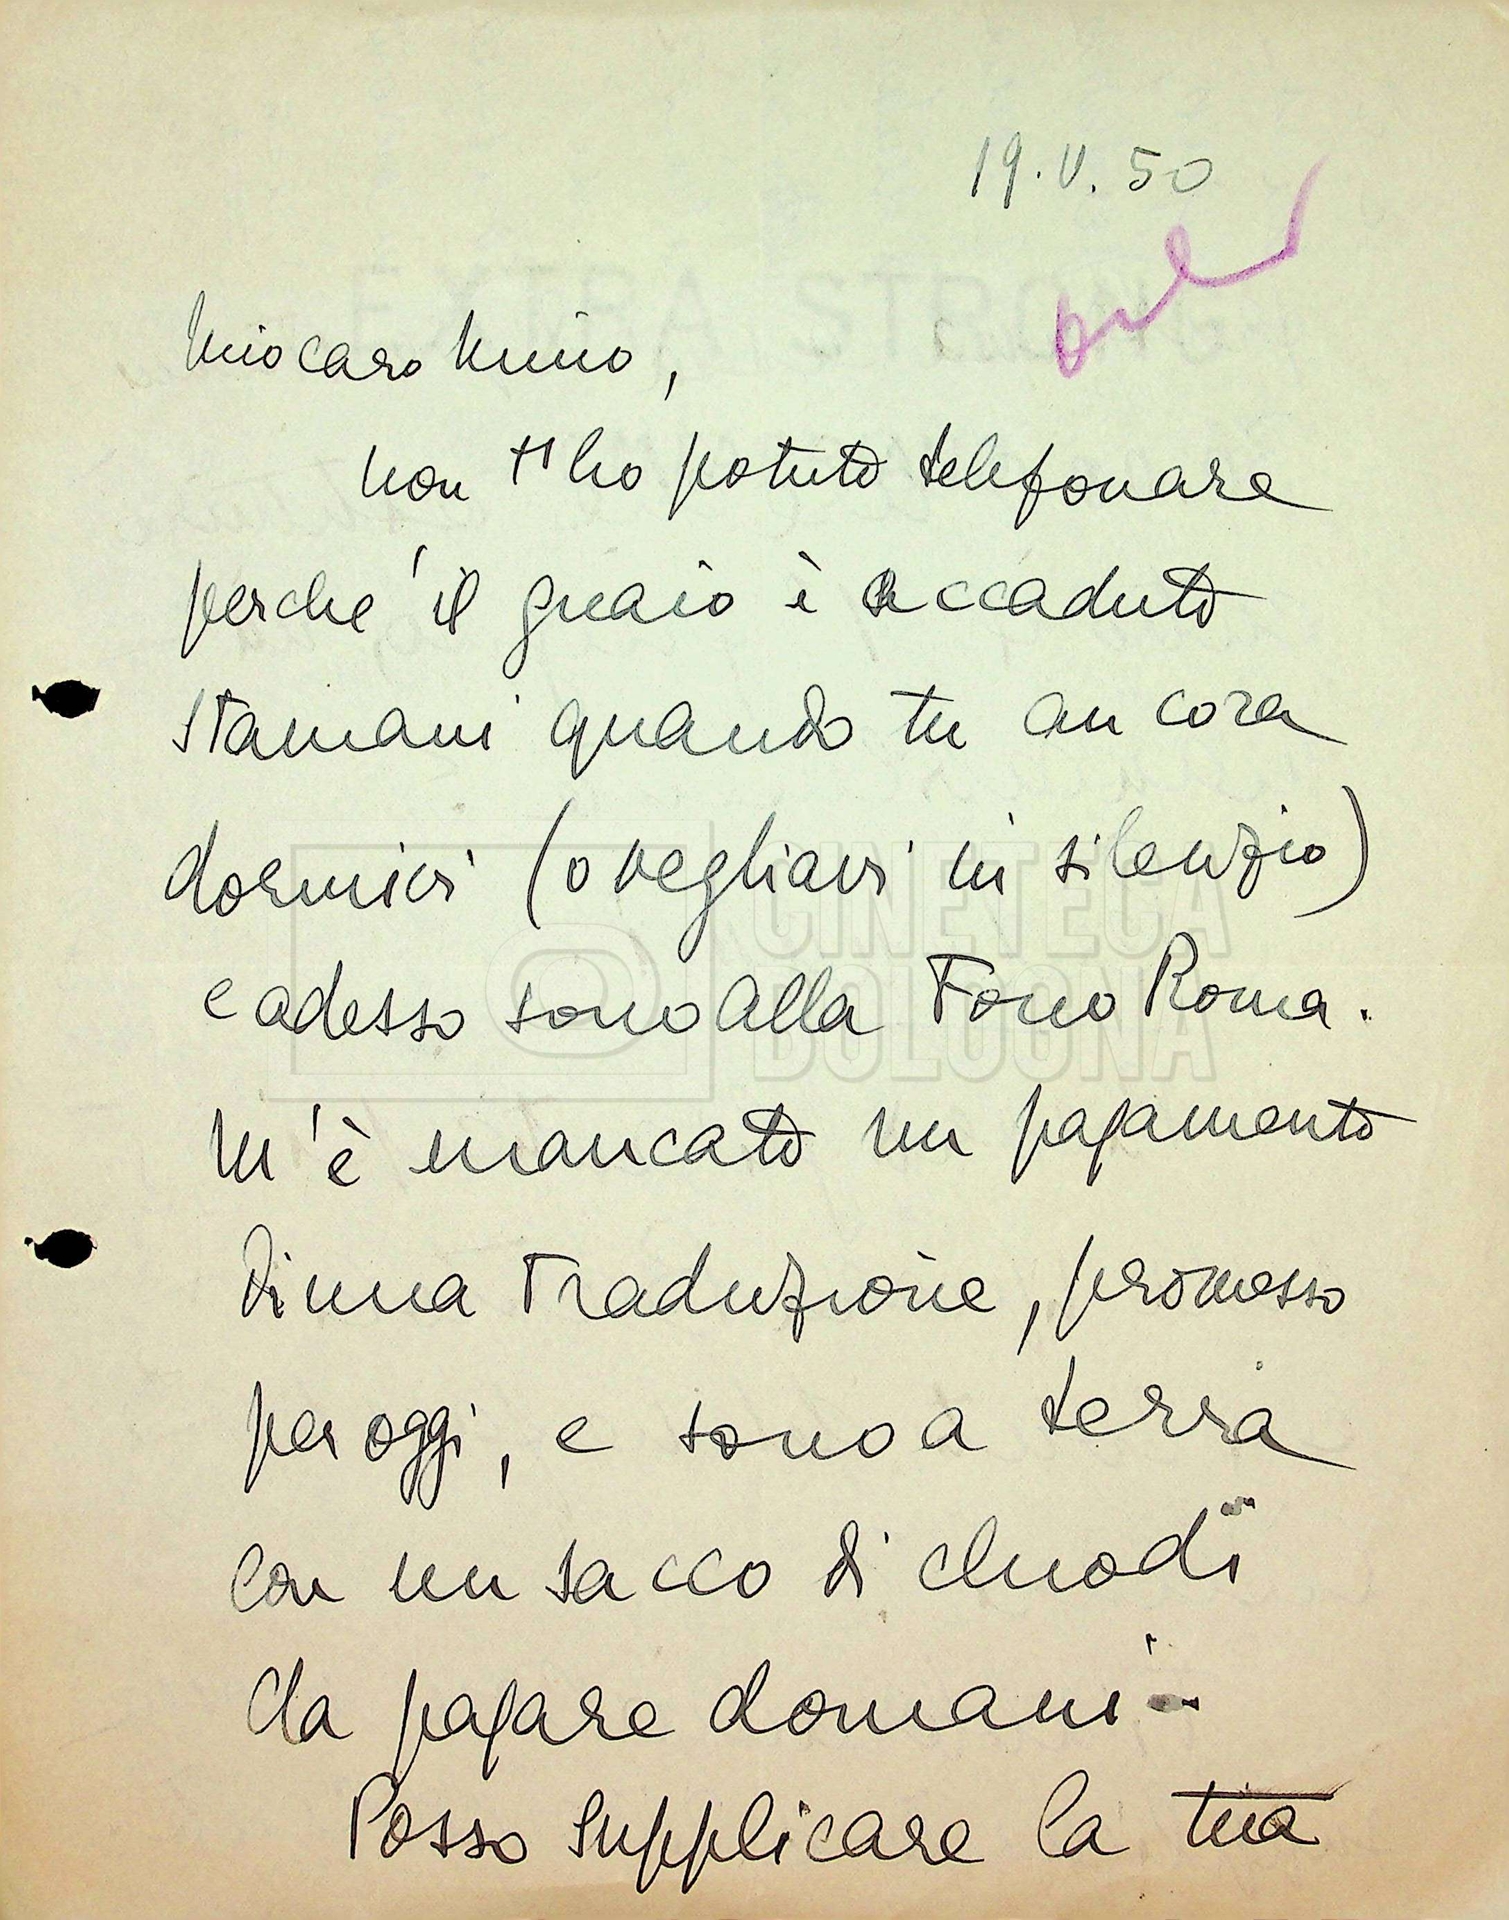 19.V.50
Mio caro Nino,
non t'ho potuto telefonare
perché il guaio è accaduto
stamani quando tu ancora
dormivi (o vegliavi in silenzio)
e adesso sono alla Fono Roma.
M'è mancato un pagamento
di una traduzione, promesso
per oggi, e sono a terra
con un sacco di chiodi
da pagare domani.
Posso supplicare la tua
CINETECA
BOLOGNA
EXTRA STRONG